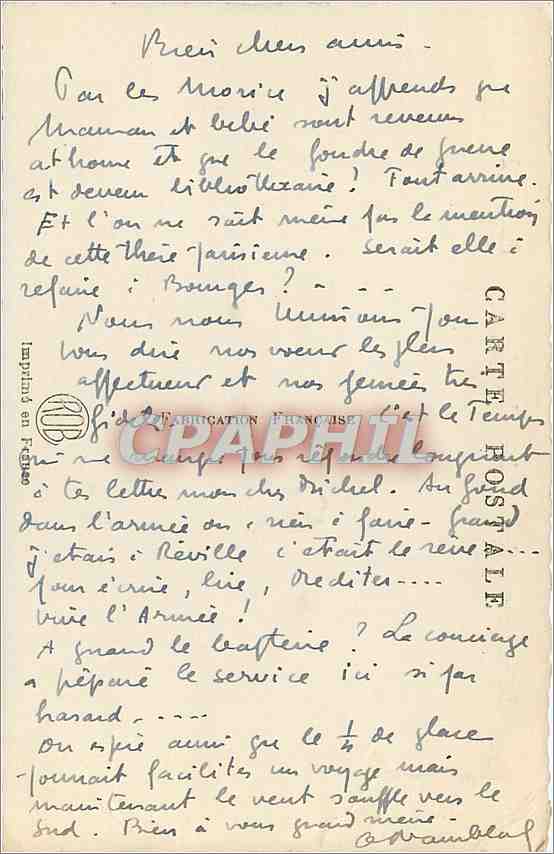 Bien chers amis -
Par les Morice j'apprends que
Maman et bébé sont revenus
at home Et que le foudre de guerre
est devenu bibliothécaire! Tout arrive.
Et l'on ne sait même pas la mention
de cette thèse parisienne. Serait elle à
refaire à Bourges? - - -
Nous nous unissons pour
vous dire nos voeux les plus
affectueux et nos pensées très
fidèles. C'est le Temps
qui me manque pour répondre longuement
à tes lettres mon cher Michel. Au fond
dans l'armée on a rien à faire - Quand
j'étais à Réville c'était le rêve ....
pour écrire, lire, méditer ----
vive l'Armée!
A quand le baptême? La concierge
a préparé le service ici si par
hasard - - - -
On espie aussi que le 1/4 de place
pourrait faciliter un voyage mais
maintenant le vent souffle vers le
Sud. Bien à vous quand même -
CARTE POSTALE
FABRICATION FRANÇAISE
Imprimé en France
CPARAPHIL